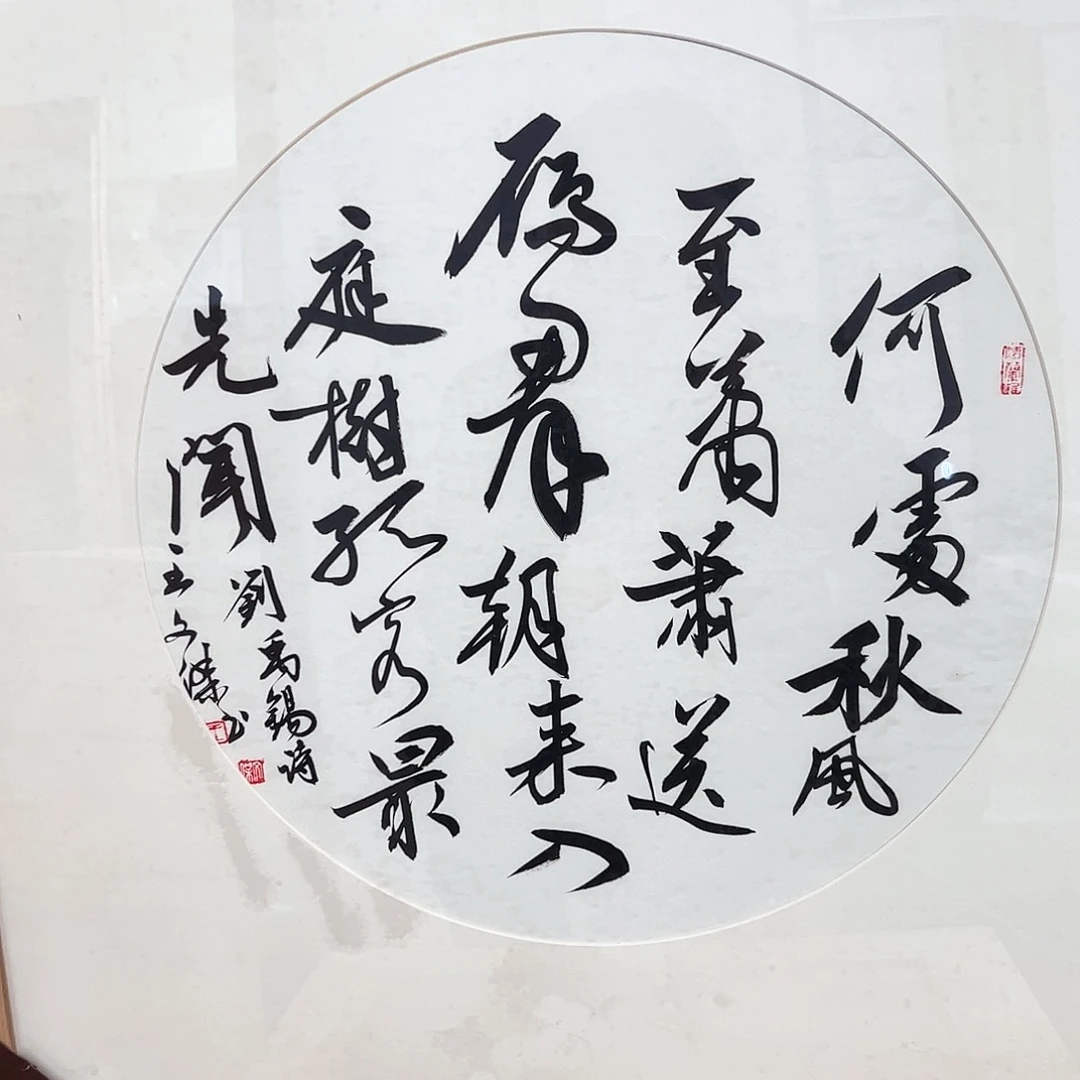 何處秋風
至蕭蕭送
鴈羣朝来入
庭樹孤客最
先聞
劉禹錫詩
王文傑书